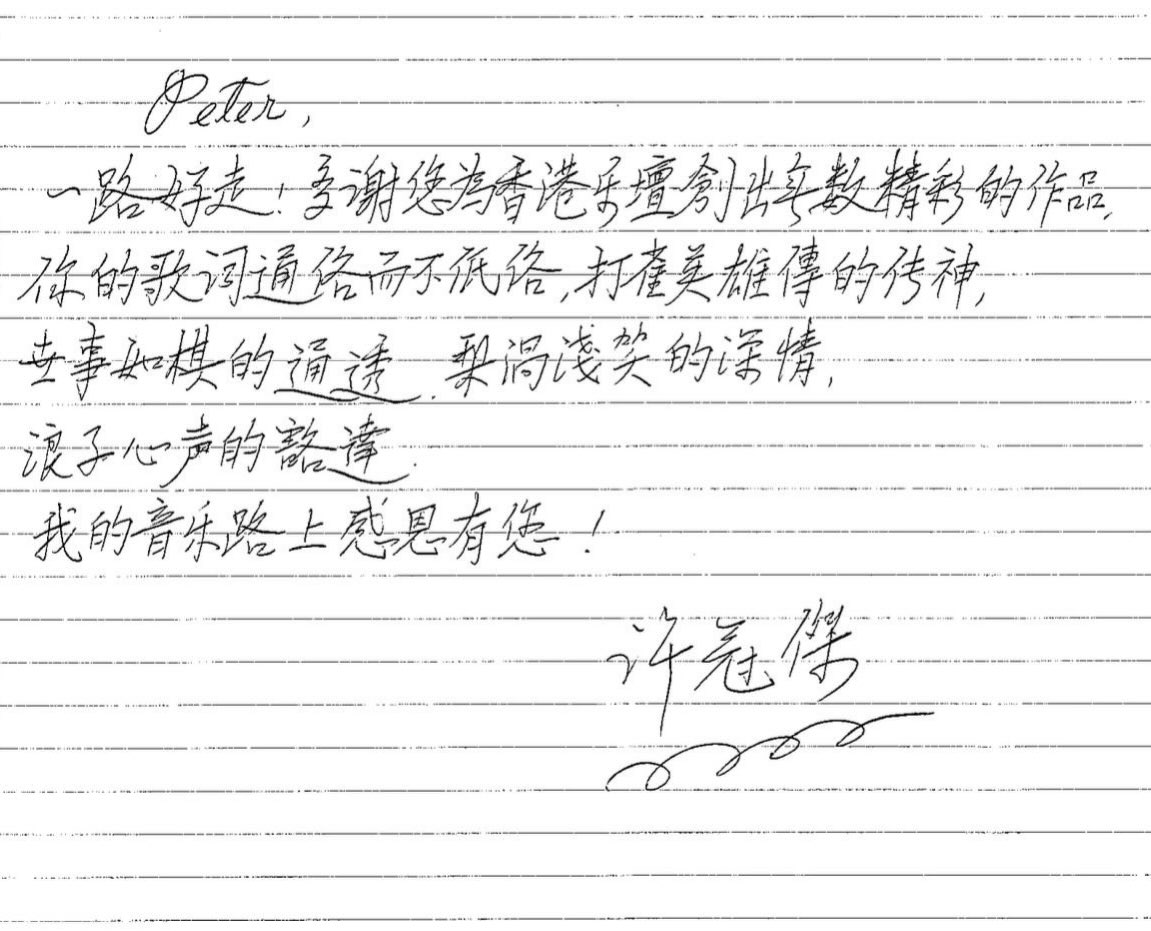 Peter,
一路好走！多谢您为香港乐壇創出无数精彩的作品,
你的歌词通俗而不低俗,打雀英雄傳的传神,
世事如棋的通透.梨涡淺笑的深情,
浪子心声的豁達.
我的音乐路上感恩有您！
许冠傑